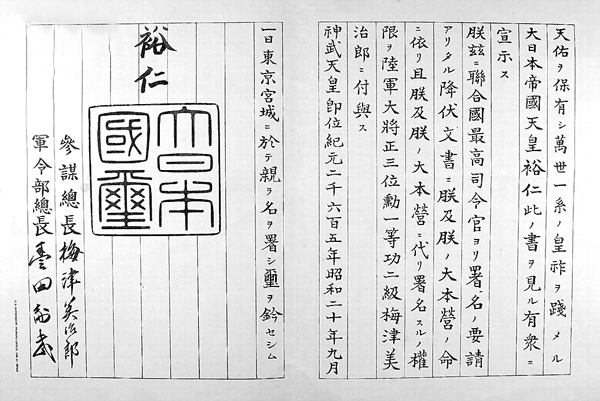 天佑ヲ保有シ萬世一系ノ皇祚ヲ踐メル
大日本帝國天皇裕仁此ノ書ヲ見ル有衆ニ
宣示ス
朕茲ニ聯合國最高司令官ヨリ署名ノ要請
アリタル降伏文書ニ朕及朕ノ大本營ノ命
ニ依リ且朕及朕ノ大本營ニ代リ署名スルノ權
限ヲ陸軍大將正三位勳一等功二級梅津美
治郎ニ付與ス
神武天皇卽位紀元二千六百五年昭和二十年九月
一日東京宮城ニ於テ親ラ名ヲ署シ璽ヲ鈐セシム
裕仁
大日本
國璽
參謀總長梅津美治郎
軍令部總長豊田副武